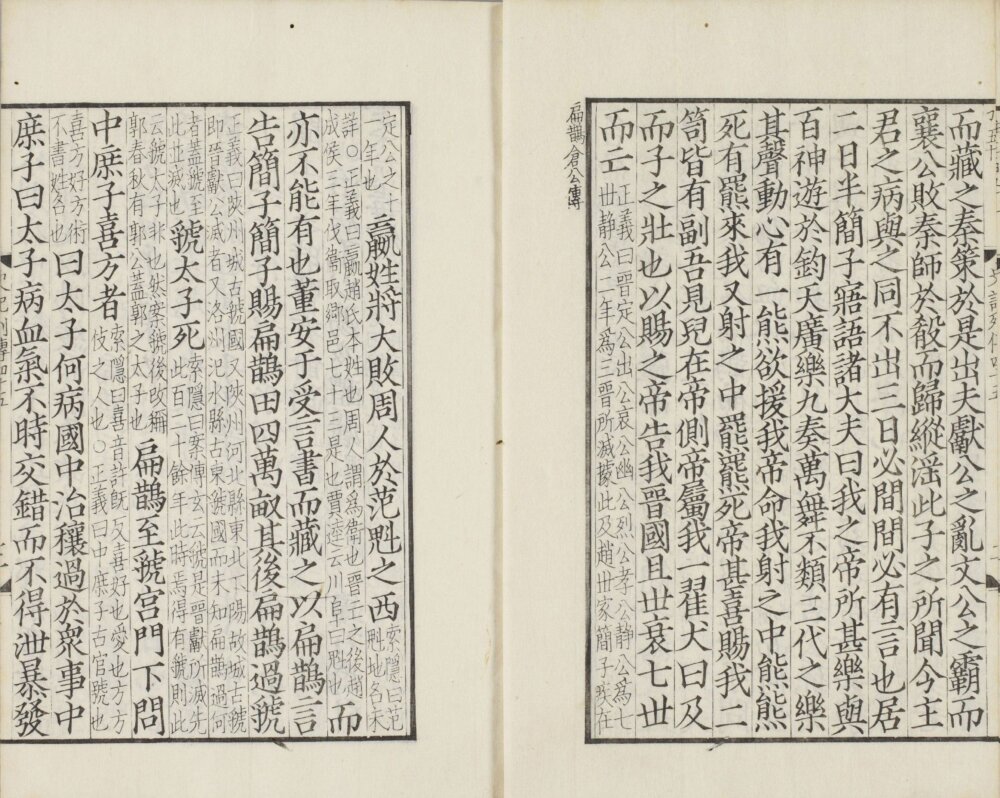 而藏之秦策於是出夫獻公之亂文公之霸而
襄公敗秦師於殽而歸縱淫此子之所聞今主
君之病與之同不出三日必間間必有言也居
二日半簡子寤語諸大夫曰我之帝所甚樂與
百神遊於鈞天廣樂九奏萬舞不類三代之樂
其聲動心有一熊欲援我帝命我射之中熊熊
死有羆來我又射之中羆羆死帝甚喜賜我二
笥皆有副吾見兒在帝側帝屬我一翟犬曰及
而子之壯也以賜之帝告我晉國且丗衰七丗
而亡
正義曰晉定公出公哀公幽公烈公孝公靜公為七
丗靜公二年為三晉所滅據此及趙丗家簡子疾在
扁鵲倉公傳
定公之十
一年也
嬴姓將大敗周人於范魁之西
索隱曰范
魁地名未
詳○正義曰嬴趙氏本姓也周人謂為衛也晉亡之後趙
成侯三年伐衛取鄉邑七十三是也賈逵云川阜曰魁也
而
亦不能有也董安于受言書而藏之以扁鵲言
告簡子簡子賜扁鵲田四萬畝其後扁鵲過虢
正義曰陝州城古虢國又陝州河北縣東北下陽故城古虢
即晉獻公滅者又洛州汜水縣古東虢國而未知扁鵲過何
者蓋虢至
此並滅也
虢太子死
索隱曰案傳玄云虢是晉獻所滅先
此百二十餘年此時焉得有虢則此
云虢太子非也然案虢後改稱
郭春秋有郭公蓋郭之太子也
扁鵲至虢宮門下問
中庶子喜方者
索隱曰喜音許既反喜好也愛也方方
伎之人也○正義曰中庶子古官號也
喜方好方術
不書姓名也
曰太子何病國中治穰過於衆事中
庶子曰太子病血氣不時交錯而不得泄暴發